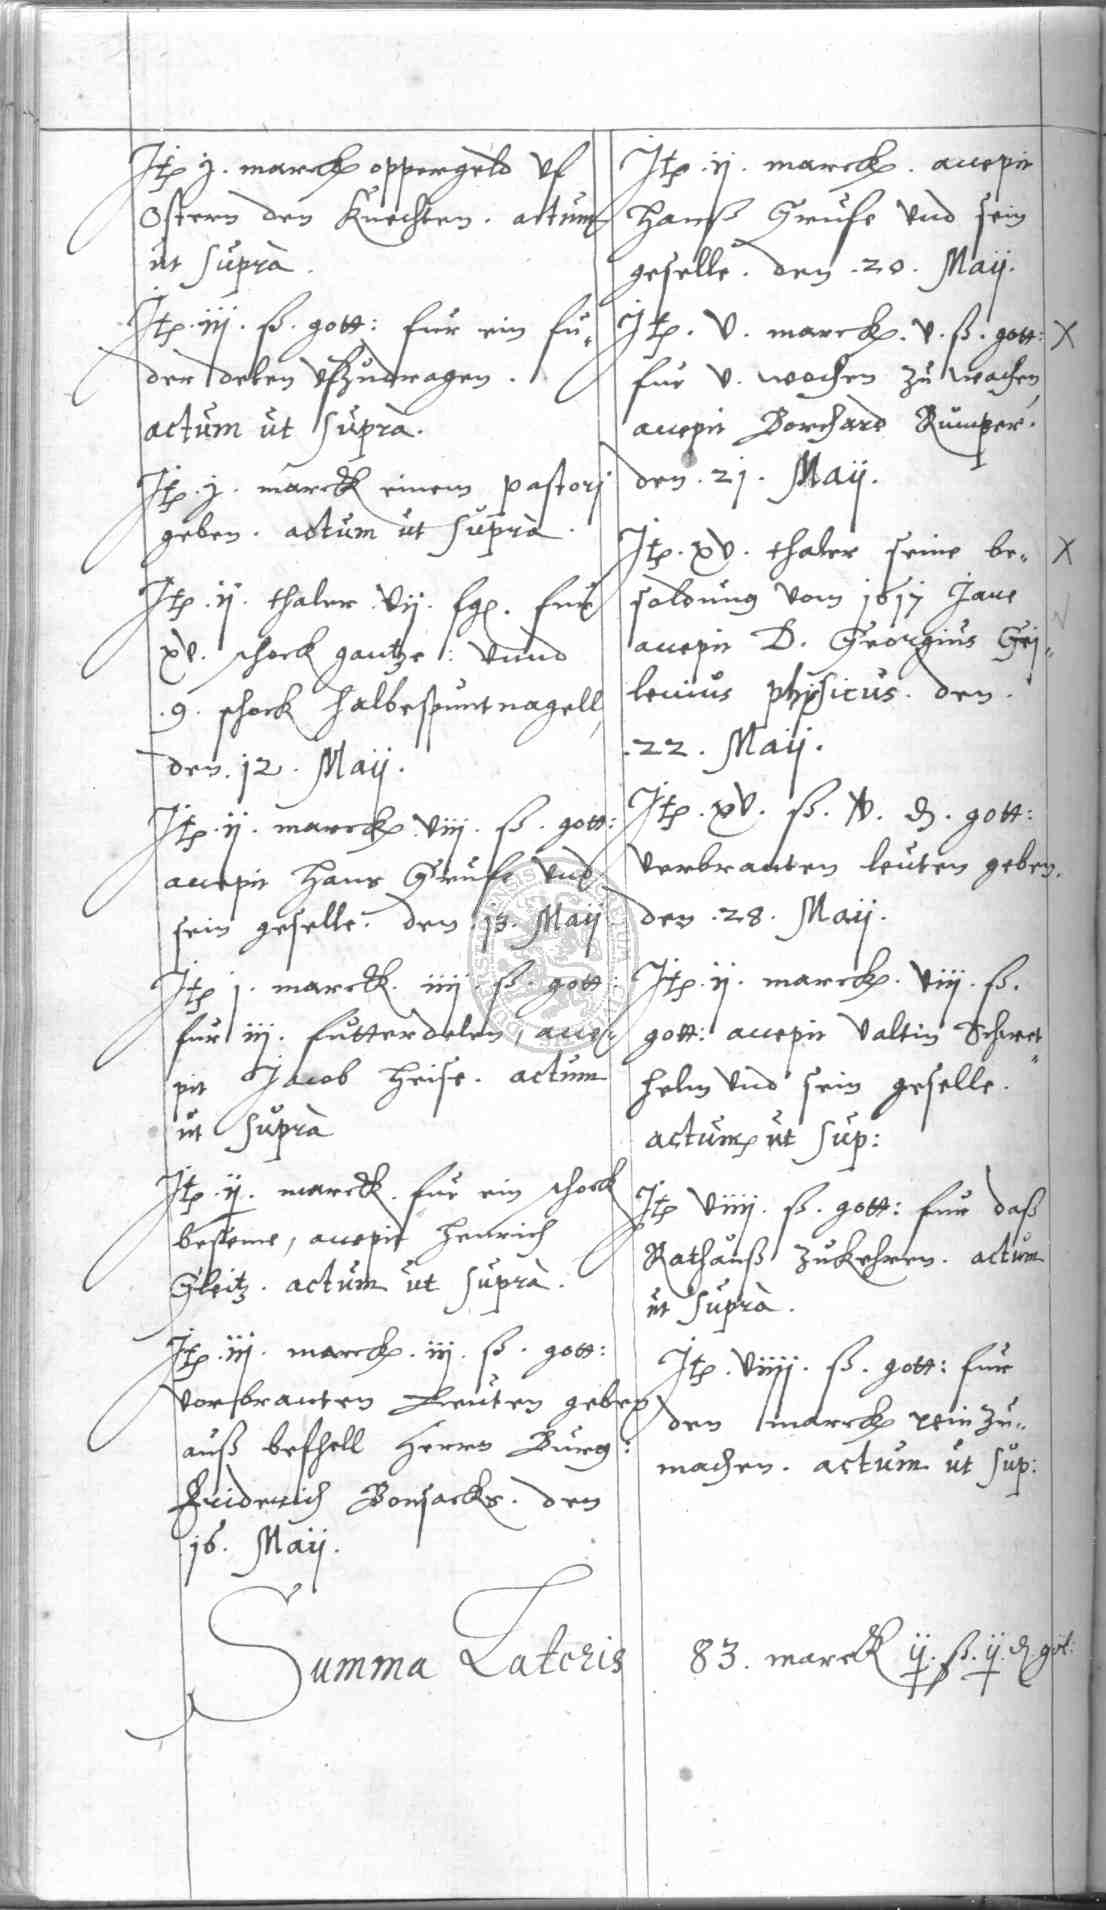 Jtp j. marck oppergeld vf
Ostern den Knechten. actum
ut suprà.
Jtp. iij. ß. gott: fur ein fu-
der delen vfzudragen.
actum ut suprà.
Jtp. j. marck einem pastorj
geben. actum ut suprà.
Jtp. ij. thaler. vij. sgl. fur
xv. schock gantze: vnnd
.9. schock halbespuntnagell,
den. 12. Maij.
Jtp. ij. marck. viij. ß. gott:
accepit Hans Grufe vnd
sein geselle. den. 13. Maij
Jtp j. marck. iiij. ß. gott:
fur iij. futterdelen, acce-
pit Jacob Heise. actum
ut suprà
Jtp. ij. marck. fur ein schock
besseme, accepit Henrich
Gleitz. actum ut suprà.
Jtp. iij. marck. iij. ß. gott:
vorbranten Leuten geben
auß befhell Herrn Burg:
Friderich Bonsacks. den
.16. Maij.
Jtp. ij. marck. accepit
Hanß Grufe vnd sein
geselle. den .20. Maij.
Jtp. v. marck. v. ß. gott:
fur v. wochen zu wachen,
accepit Borchard Rumper.
den .21. Maij.
Jtp. xv. thaler seine be-
soldung vom 1617 Jare
accepit D. Georgius Gei-
lenius physicus. den.
.22. Maij.
Jtp. xv. ß. iv. d. gott:
verbranten leuten geben.
den .28. Maij.
Jtp. ij. marck. viij. ß.
gott: accepit Valtin Schwet-
helm vnd sein geselle.
actum ut sup:
Jtp viiij. ß. gott: fur daß
Rathauß zukehren. actum
ut suprà.
Jtp. viiij. ß. gott: fur
den marck rein zu-
machen. actum ut sup:
Summa Lateris 83. marck ij. ß. ij. d got: